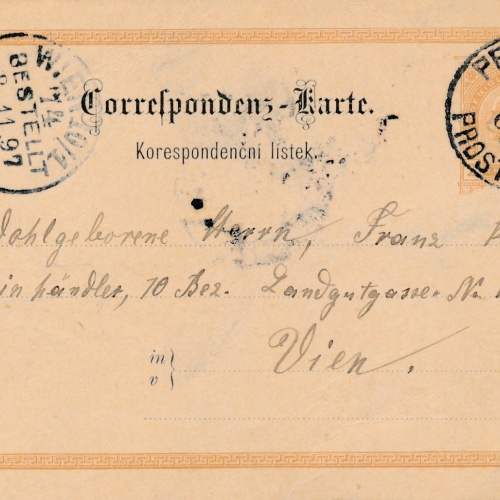 WIEN 10/1
74
BESTELLT
8.11.97
Correspondenz-Karte.
Korespondenční lístek.
PROST
ohlgeborene Herrn, Franz
inhändler, 10 Bez. Landgutgasse No
in
v
Vien.